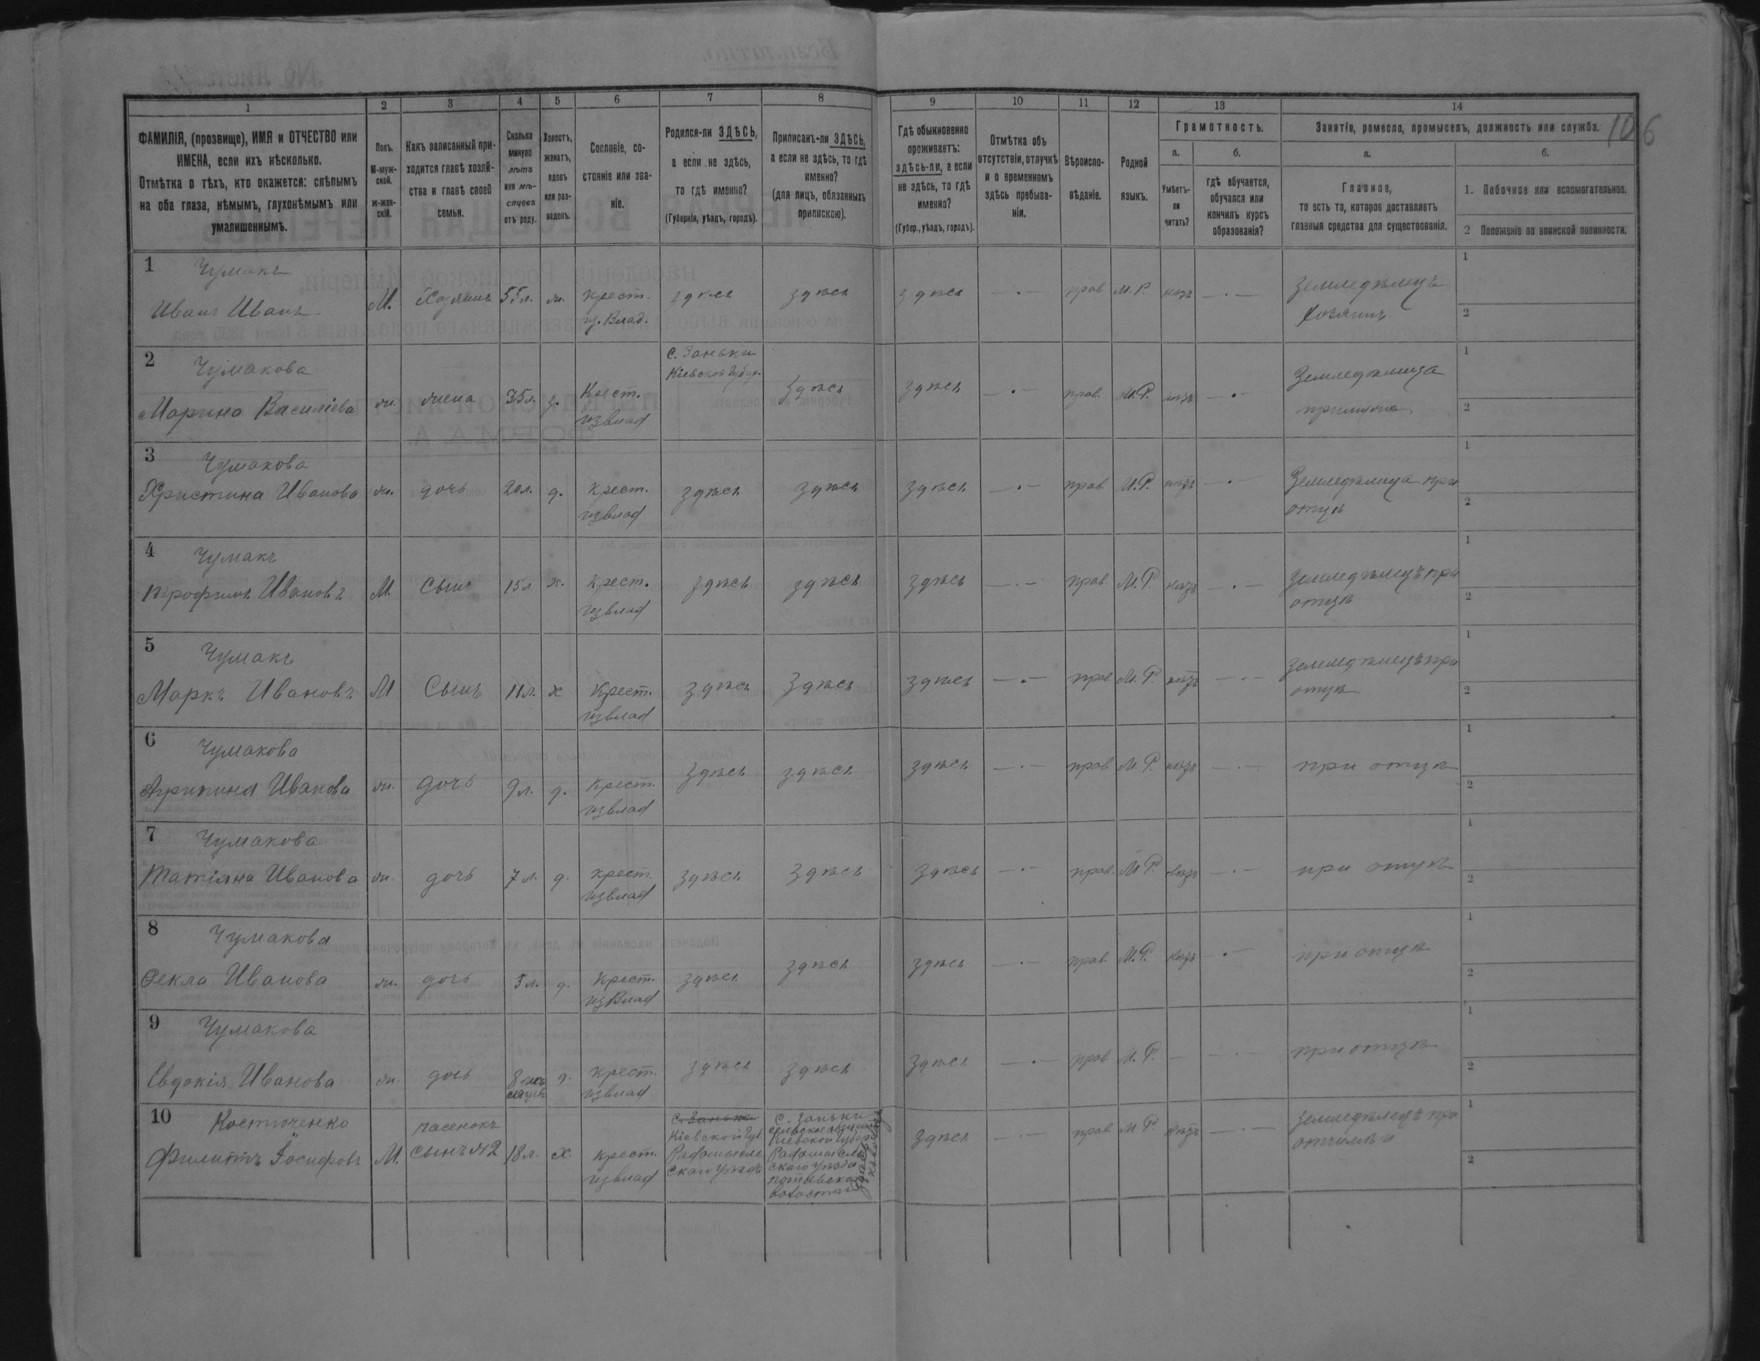 1 2 3 4 5 6 7 8 9 10 11 12 13 14
106
ФАМИЛІЯ, (прозвище), ИМЯ и ОТЧЕСТВО или
ИМЕНА, если ихъ нѣсколько.
Отмѣтка о тѣхъ, кто окажется: слѣпымъ
на оба глаза, нѣмымъ, глухонѣмымъ или
умалишеннымъ.
Полъ.
М-муж-
ской.
ж-жен-
скій.
Какъ записанный при-
ходится главѣ хозяй-
ства и главѣ своей
семьи.
Сколько
минуло
лѣтъ
или мѣ-
сяцевъ
отъ роду.
Холостъ,
женатъ,
вдовъ
или раз-
веденъ.
Сословіе, со-
стояніе или зва-
ніе.
Родился-ли ЗДѢСЬ,
а если не здѣсь,
то гдѣ именно?
(Губернія, уѣздъ, городъ).
Приписанъ-ли ЗДѢСЬ,
а если не здѣсь, то гдѣ
именно?
(для лицъ, обязанныхъ
припискою).
Гдѣ обыкновенно
проживаетъ:
здѣсь-ли, а если
не здѣсь, то гдѣ
именно?
(Губер., уѣздъ, городъ).
Отмѣтка объ
отсутствіи, отлучкѣ
и о временномъ
здѣсь пребыва-
ніи.
Вѣроиспо-
вѣданіе.
Родной
языкъ.
Грамотность.
а.
Умѣетъ-
ли
читать?
б.
гдѣ обучается,
обучался или
кончилъ курсъ
образованія?
Занятіе, ремесло, промыселъ, должность или служба.
а.
Главное,
то есть то, которое доставляетъ
главныя средства для существованія.
б.
1. Побочное или вспомогательное.
2 Положеніе по воинской повинности.
1 Чумакъ
Иванъ Иванъ М. Хозяинъ 55 л. ж. крест. здѣсь здѣсь здѣсь — · — прав М. Р. нѣтъ — · — Земледѣлецъ 1
из. Влад. хозяинъ 2
2 Чумакова с. Заньки
Кіевской Губер.
Марина Василіева ж. жена 35 л. з. Крест. здѣсь здѣсь — · — прав. М. Р. нѣтъ — · — Земледѣлица 1
извлад 2
3 Чумакова
Христина Иванова ж. дочь 20 л. д. крест. здѣсь здѣсь здѣсь — · — прав М. Р. нѣтъ — · — Земледѣлица при 1
извлад отцѣ 2
4 Чумакъ
Трофимъ Ивановъ М. Сынъ 15 л х. крест. здѣсь здѣсь здѣсь — · — прав М. Р. нѣтъ — · — Земледѣлецъ при 1
извлад отцѣ 2
5 Чумакъ
Маркъ Ивановъ М Сынъ 11 л. х Крест. здѣсь здѣсь здѣсь — · — прав М. Р. нѣтъ — · — Земледѣлецъ при 1
извлад отцѣ 2
6 Чумакова
Агрипина Иванова ж. дочь 9 л. д. Крест. здѣсь здѣсь здѣсь — · — прав М. Р. нѣтъ — · — при отцѣ 1
извлад 2
7 Чумакова
Татіяна Иванова ж. дочь 7 л. д. крест. здѣсь здѣсь здѣсь — · — прав. М. Р. нѣтъ — · — при отцѣ 1
извлад 2
8 Чумакова
Фекла Иванова ж. дочь 5 л. д. Крест. здѣсь здѣсь здѣсь — · — прав М. Р. нѣтъ — · — при отцѣ 1
из Влад 2
9 Чумакова
Евдокія Иванова ж. дочь 8 мѣ д. крест. здѣсь здѣсь здѣсь — · — прав М. Р. — — · — при отцѣ 1
сяцевъ извлад 2
10 Костюченко пасенокъ с. Заньки с. Заньки
Филиппъ Іосифовъ М. сынъ №2 18 л. х. крест. Кіевской Губ Кіевской Губер здѣсь — · — прав М. Р. нѣтъ — · — Земледѣлецъ при 1
извлад Радомысль Радомысль отчимѣ 2
скаго уѣзда скаго уѣзда
волости